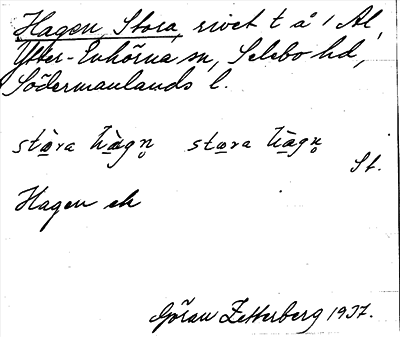 Hagen, Stora, rivet t å 1 Al,
Ytter-Enhörna sn, Selebo hd,
Södermanlands l.
sto̱ra hàgn̥ stœra hàgn̥
St.
Hagen ek
Göran Zetterberg 1937.